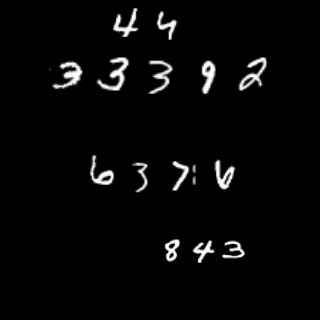 44
33392
6376
843